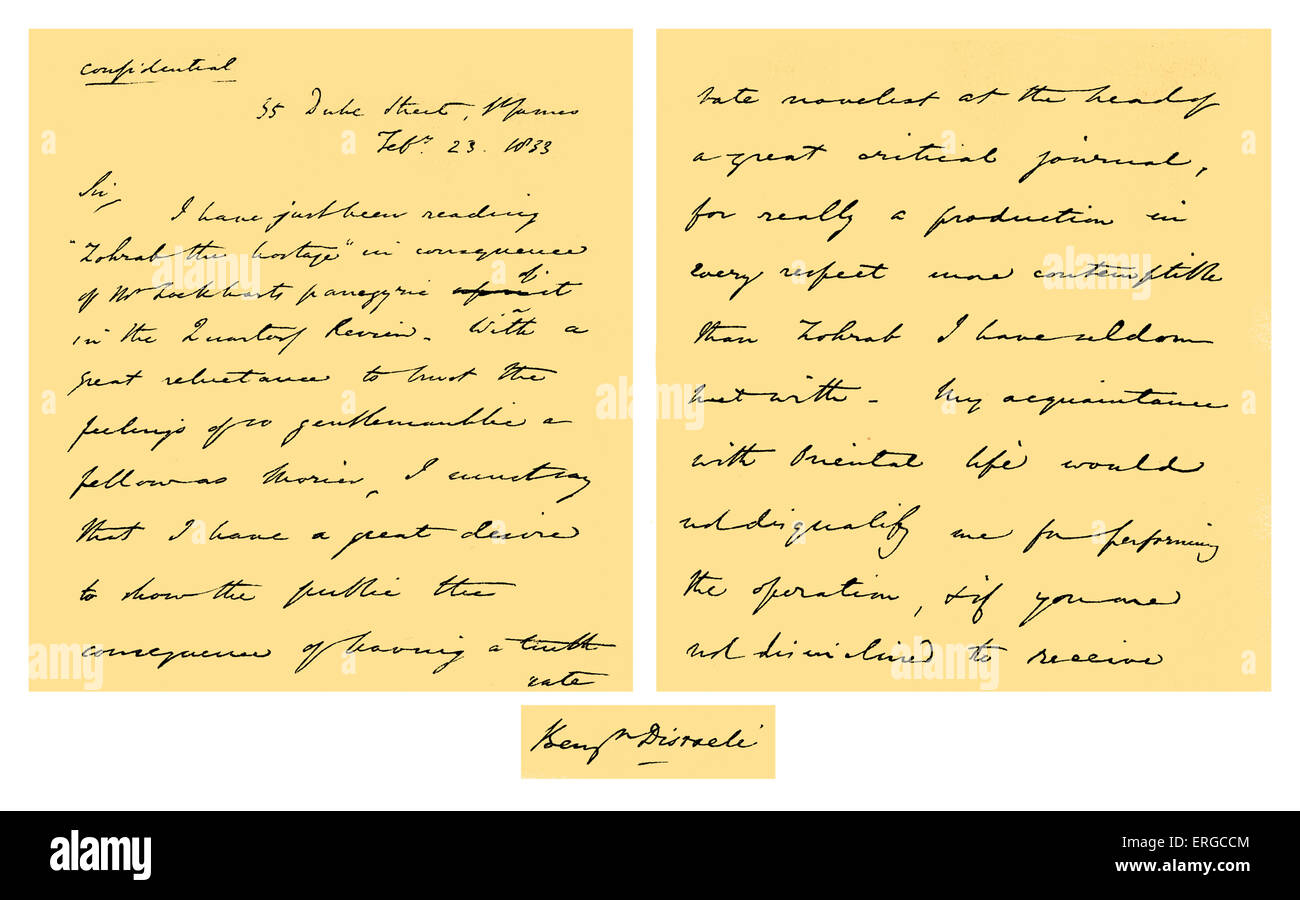 Confidential
35 Duke Street, St James
Feby 23. 1833
Sir,
I have just been reading
"Zohrab the hostage" in consequence
of
of Mr Lockharts panegyric it
in the Quarterly Review. With a
great reluctance to hurt the
feelings of so gentlemanlike a
fellow as Morier, I must say
that I have a great desire
to show the public the
consequence of having a tenth
rate
rate novelist at the head of
a great critical journal,
for really a production in
every respect more contemptible
than Zohrab I have seldom
met with - My acquaintance
with Oriental life would
not disqualify me for performing
the operation, & if you are
not disinclined to receive
Benjn Disraeli
a alamy
alamy stock photo
ERGCCM
www.alamy.com